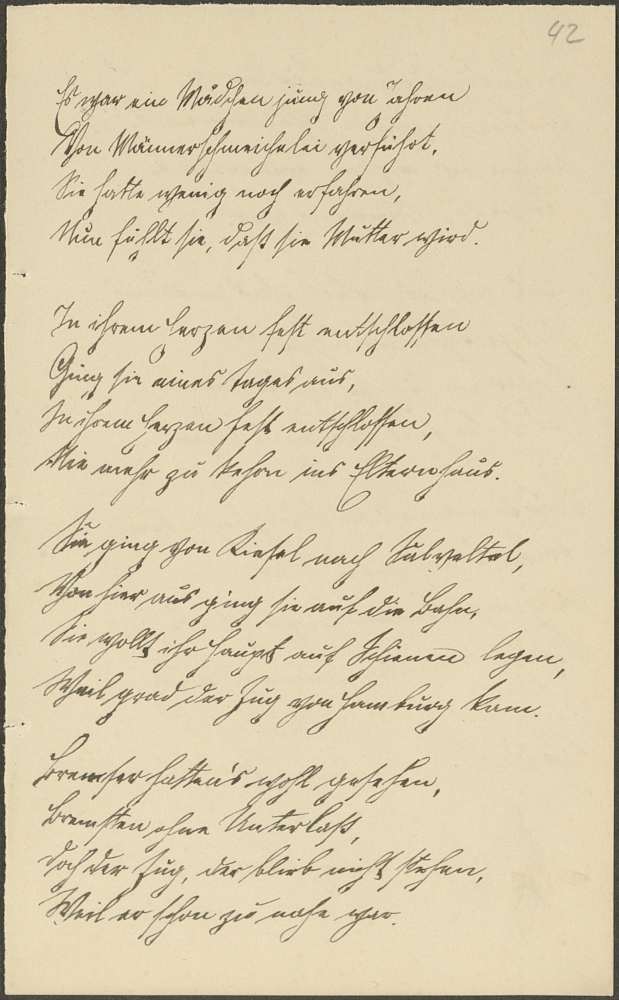 42
Es war ein Mädchen jung von Jahren
Von Männerschmeichelei verführt,
Sie hatte wenig noch erfahren,
Nun fühlt sie, daß sie Mutter wird.
In ihrem Herzen fest entschlossen
Ging sie eines Tages aus,
In ihrem Herzen fest entschlossen,
Nie mehr zu kehren ins Elternhaus.
Sie ging von nach
Von hier aus ging sie auf die Bahn,
Sie wollt ihr Haupt auf Schienen legen,
Weil grad der Zug von Hamburg kam.
Bremser hatten's wohl gesehen,
Bremsten ohne Unterlaß,
Doch der Zug, der blieb nicht stehen,
Weil er schon zu nahe war.